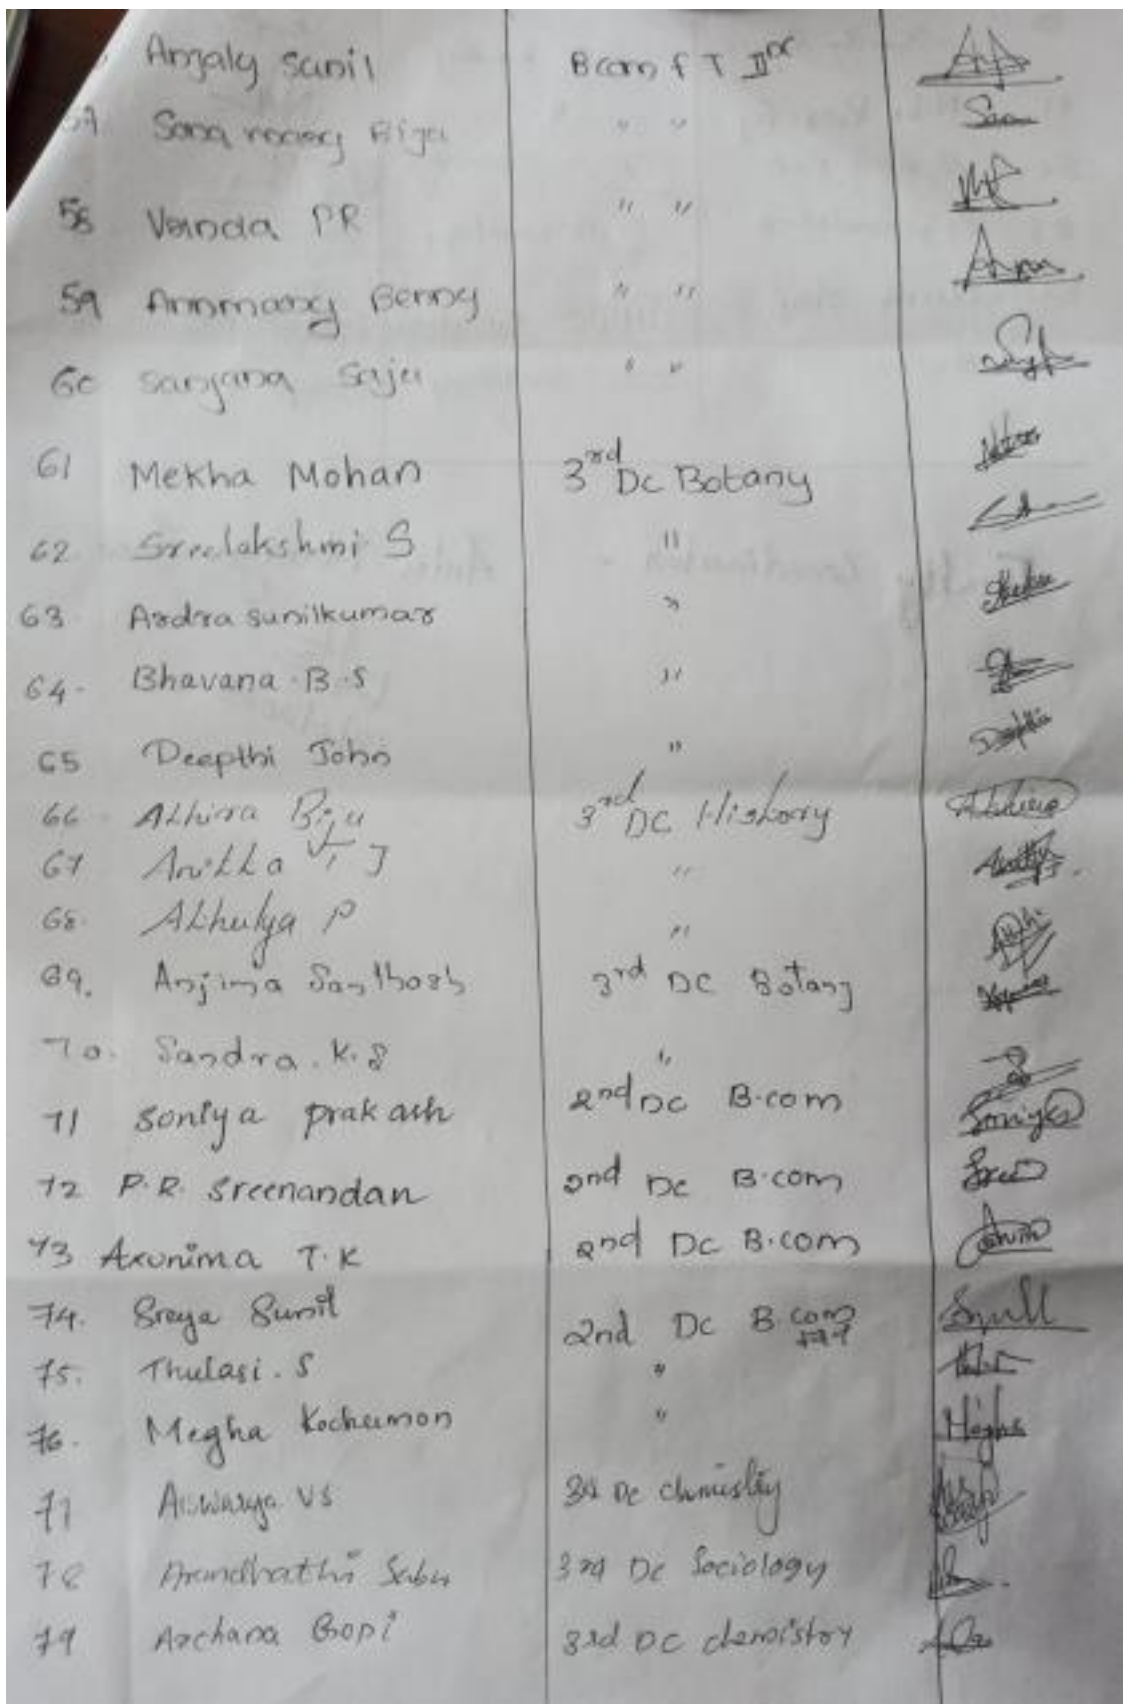 Anjaly Sunil Bcom F T IInd
Sona mary Biju " "
58 Vrinda PR " "
59 Annmary Benny " "
60 Sanjana Saju " "
61 Mekha Mohan 3rd Dc Botany
62 Sreelakshmi S "
63 Ardra sunilkumar "
64. Bhavana B.S "
65 Deepthi John " Deepthi
66 Athira Biju 3rd DC History Athira
67 Anitha V J "
68. Athulya P "
69. Anjima Santhosh 3rd DC Botany
70. Sandra. K. S "
71 Soniya prakash 2nd DC B.com Soniya
72 P.R. Sreenandan 2nd Dc B.com Sree
73 Arunima T.K 2nd Dc B.com
74. Sreya Sunil 2nd Dc B.com
75. Thulasi. S "
76. Megha Kochumon " Megha
77 Aiswarya VS 3rd Dc chemistry
78 Arundhathi Sabu 3rd Dc Sociology
79 Archana Gopi 3rd DC chemistry